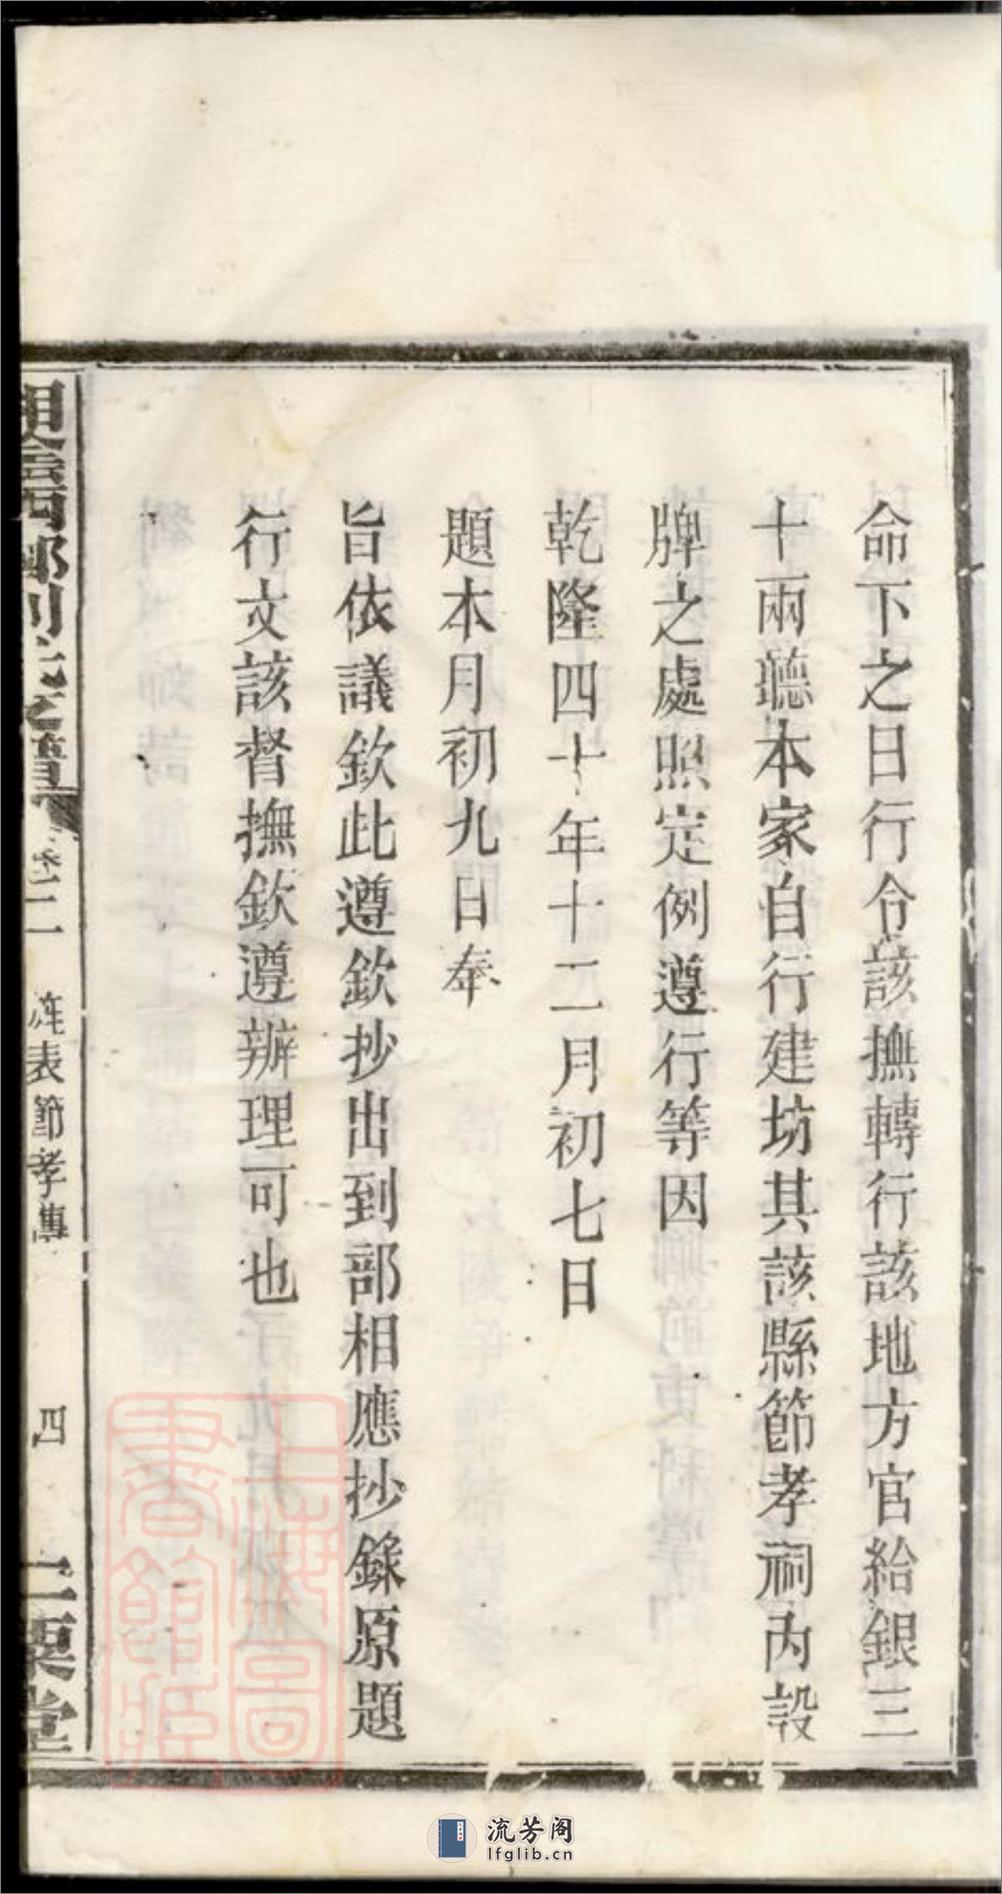 命下之日行令該撫轉行該地方官給銀三
十兩聽本家自行建坊其該縣節孝祠內設
牌之處照定例遵行等因
乾隆四十年十二月初七日
題本月初九日奉
旨依議欽此遵欽抄出到部相應抄錄原題
行文該督撫欽遵辦理可也
卷二
旌表節孝傳
四
二栗堂
上海圖書館藏
流芳阁
lfglib.cn